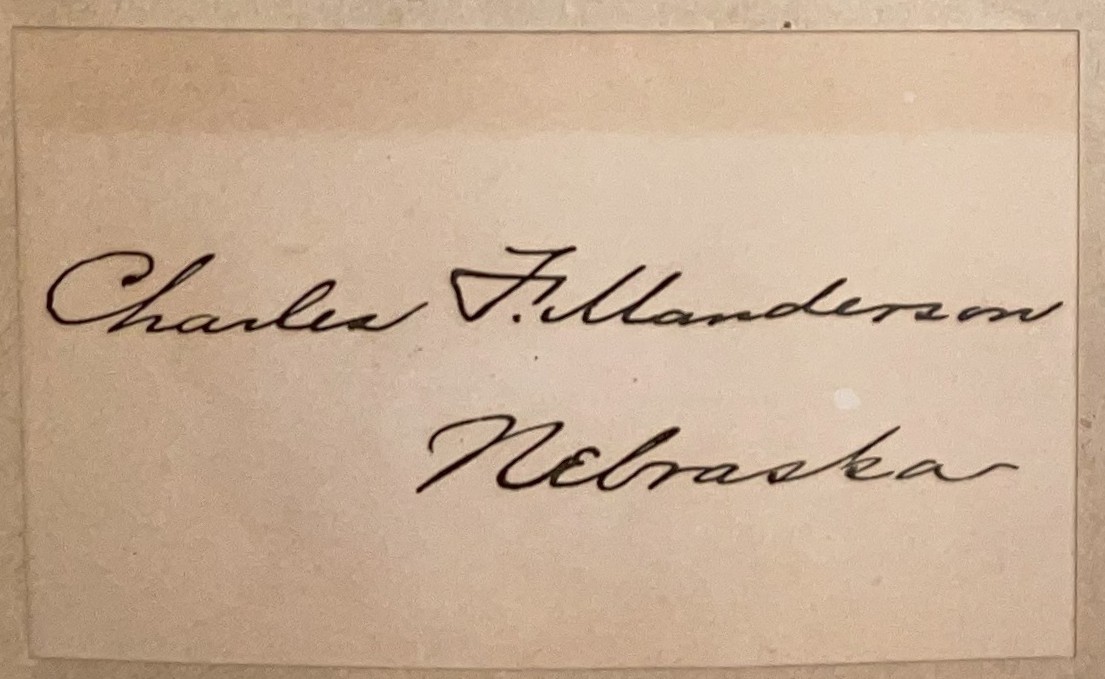 Charles F. Manderson
Nebraska